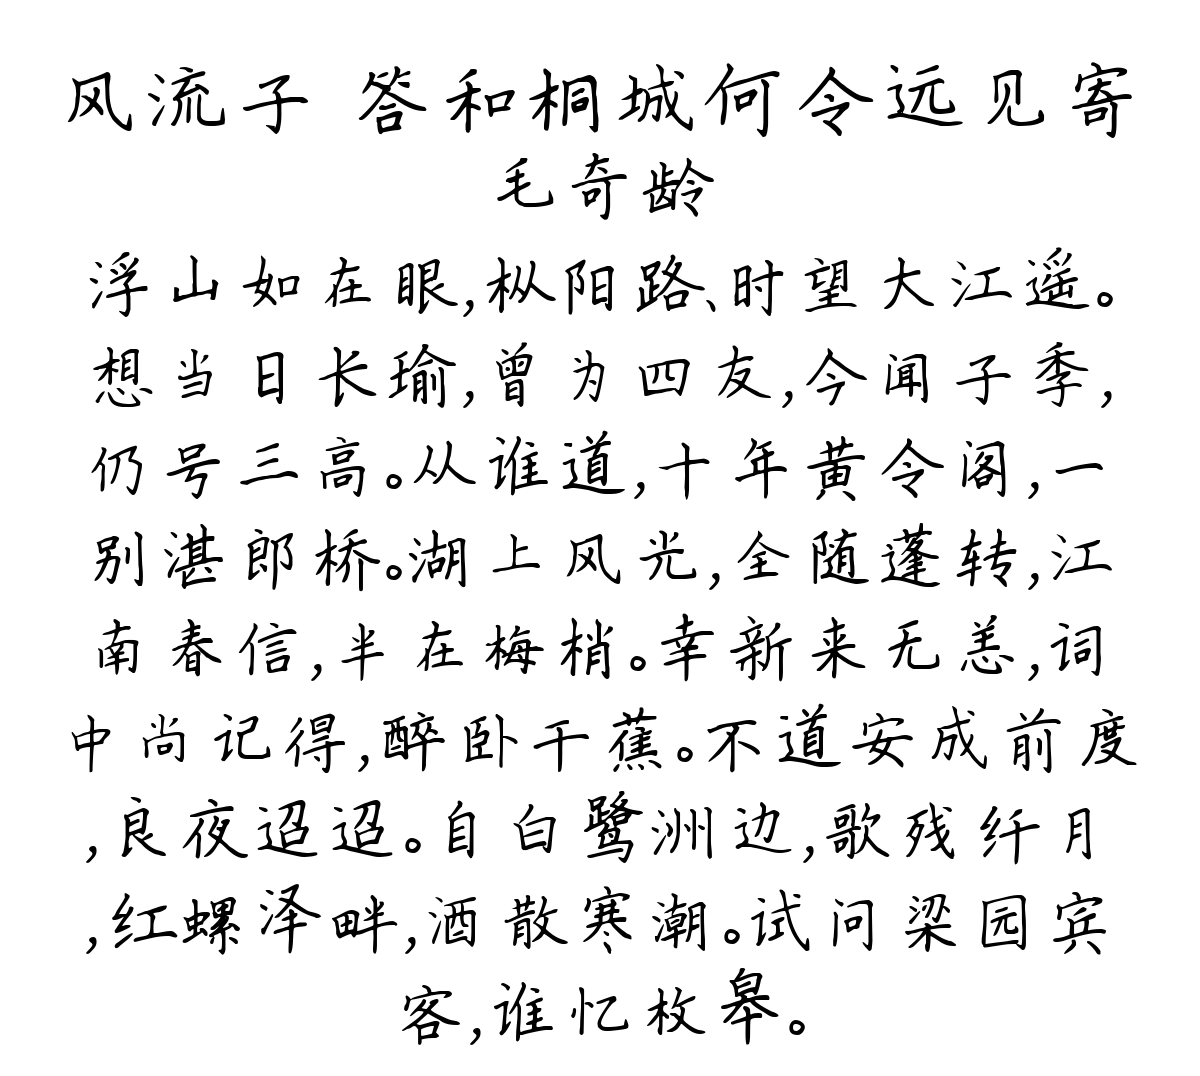 风流子 答和桐城何令远见寄
毛奇龄
浮山如在眼,枞阳路、时望大江遥。
想当日长瑜,曾为四友,今闻子季,
仍号三高。从谁道,十年黄令阁,一
别湛郎桥。湖上风光,全随蓬转,江
南春信,半在梅梢。幸新来无恙,词
中尚记得,醉卧干蕉。不道安成前度
,良夜迢迢。自白鹭洲边,歌残纤月
,红螺泽畔,酒散寒潮。试问梁园宾
客,谁忆枚皋。